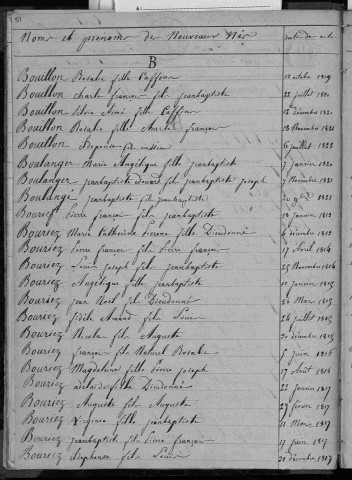 Noms et prénoms des Nouveaux Nés date des acte
B
Bouillon Rosalie fille 12 octobre 1819
Bouillon charle françois fils jeanbaptiste 22 juillet 1820
Bouillon Aimé fils 12 décembre 1820
Bouillon Rosalie fille françois 18 Novembre 1821
Bouillon fils 6 juillet 1822
Boulanger Marie Angélique fille jeanbaptiste 7 janvier 1820
Boulanger jeanbaptiste édouard fils jeanbaptiste joseph 7 Novembre 1820
Boulangé jeanbaptiste fils jeanbaptiste 1822
Bouriez Pierre françois fils jeanbaptiste 14 janvier 1813
Bouriez Marie Catherine fille Dieudonné 6 décembre 1813
Bouriez Pierre françois fils Pierre françois 17 Avril 1814
Bouriez Louis joseph fils jeanbaptiste 25 Novembre 1814
Bouriez Angélique fille jeanbaptiste 11 janvier 1815
Bouriez jean Noel fils Dieudonné 20 Mars 1815
Bouriez Amand fils Louis 24 juillet 1815
Bouriez Nicolas fils Auguste 20 décembre 1815
Bouriez françois fils Naturel Rosalie 5 juin 1816
Bouriez Magdeleine fille joseph 17 Août 1816
Bouriez adelaide fille Dieudonné 22 janvier 1817
Bouriez Auguste fils Auguste 27 février 1817
Bouriez Virginie fille jeanbaptiste 11 Mars 1817
Bouriez jeanbaptiste fils Pierre françois 17 juin 1817
Bouriez Stéphanie fille Louis 21 décembre 1817